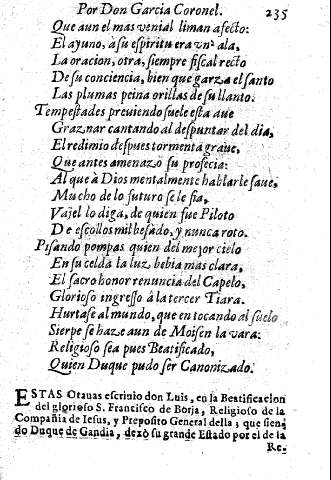 Por Don Garcia Coronel. 235
Que aun el mas venial liman afecto:
El ayuno, à su espiritu era vn'ala,
La oracion, otra, siempre fiscal recto
De su conciencia, bien que garza el santo
Las plumas peina orillas de su llanto.
Tempestades preuiendo suele esta aue
Graznar cantando al despuntar del dia,
El redimio despues tormenta graue,
Que antes amenazó su profecia:
Al que à Dios mentalmente hablar le saue,
Mucho de lo futuro se le fia,
Vajel lo diga, de quien fue Piloto
De escollos mil besado, y nunca roto.
Pisando pompas quien del mejor cielo
En su celda la luz bebia mas clara,
El sacro honor renuncia del Capelo,
Glorioso ingresso à la tercer Tiara.
Hurtase al mundo, que en tocando al suelo
Sierpe se haze aun de Moisen la vara:
Religioso sea pues Beatificado,
Quien Duque pudo ser Canonizado.
ESTAS Otauas escriuio don Luis, en la Beatificacion
del glorioso S. Francisco de Borja, Religioso de la
Compañia de Iesus, y Preposito General della, que sien-
do Duque de Gandia, dexò su grande Estado por el de la
Re.